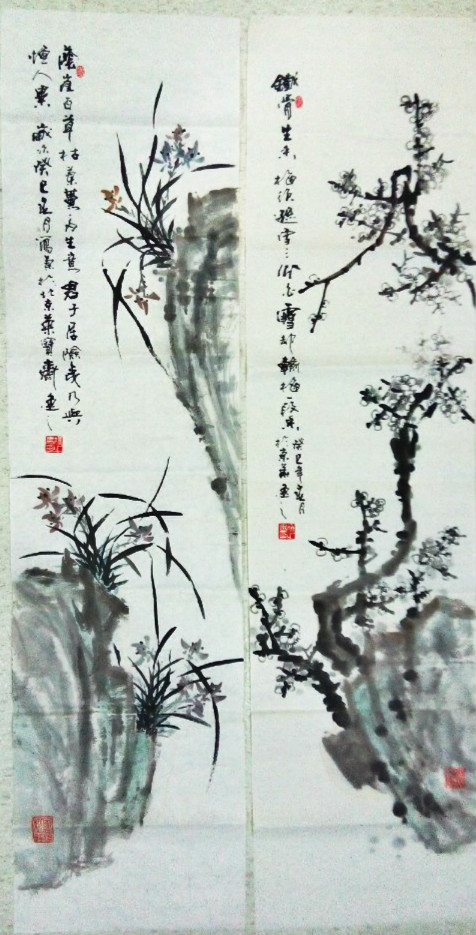 鐵骨生春
梅須遜雪三分白雪却輸梅一段香
癸巳年夏月
於京華
陰崖百草枯蘭蕙多生意君子居險夷乃與
憎人異 歲次癸巳夏月寫
於北京榮寶齋